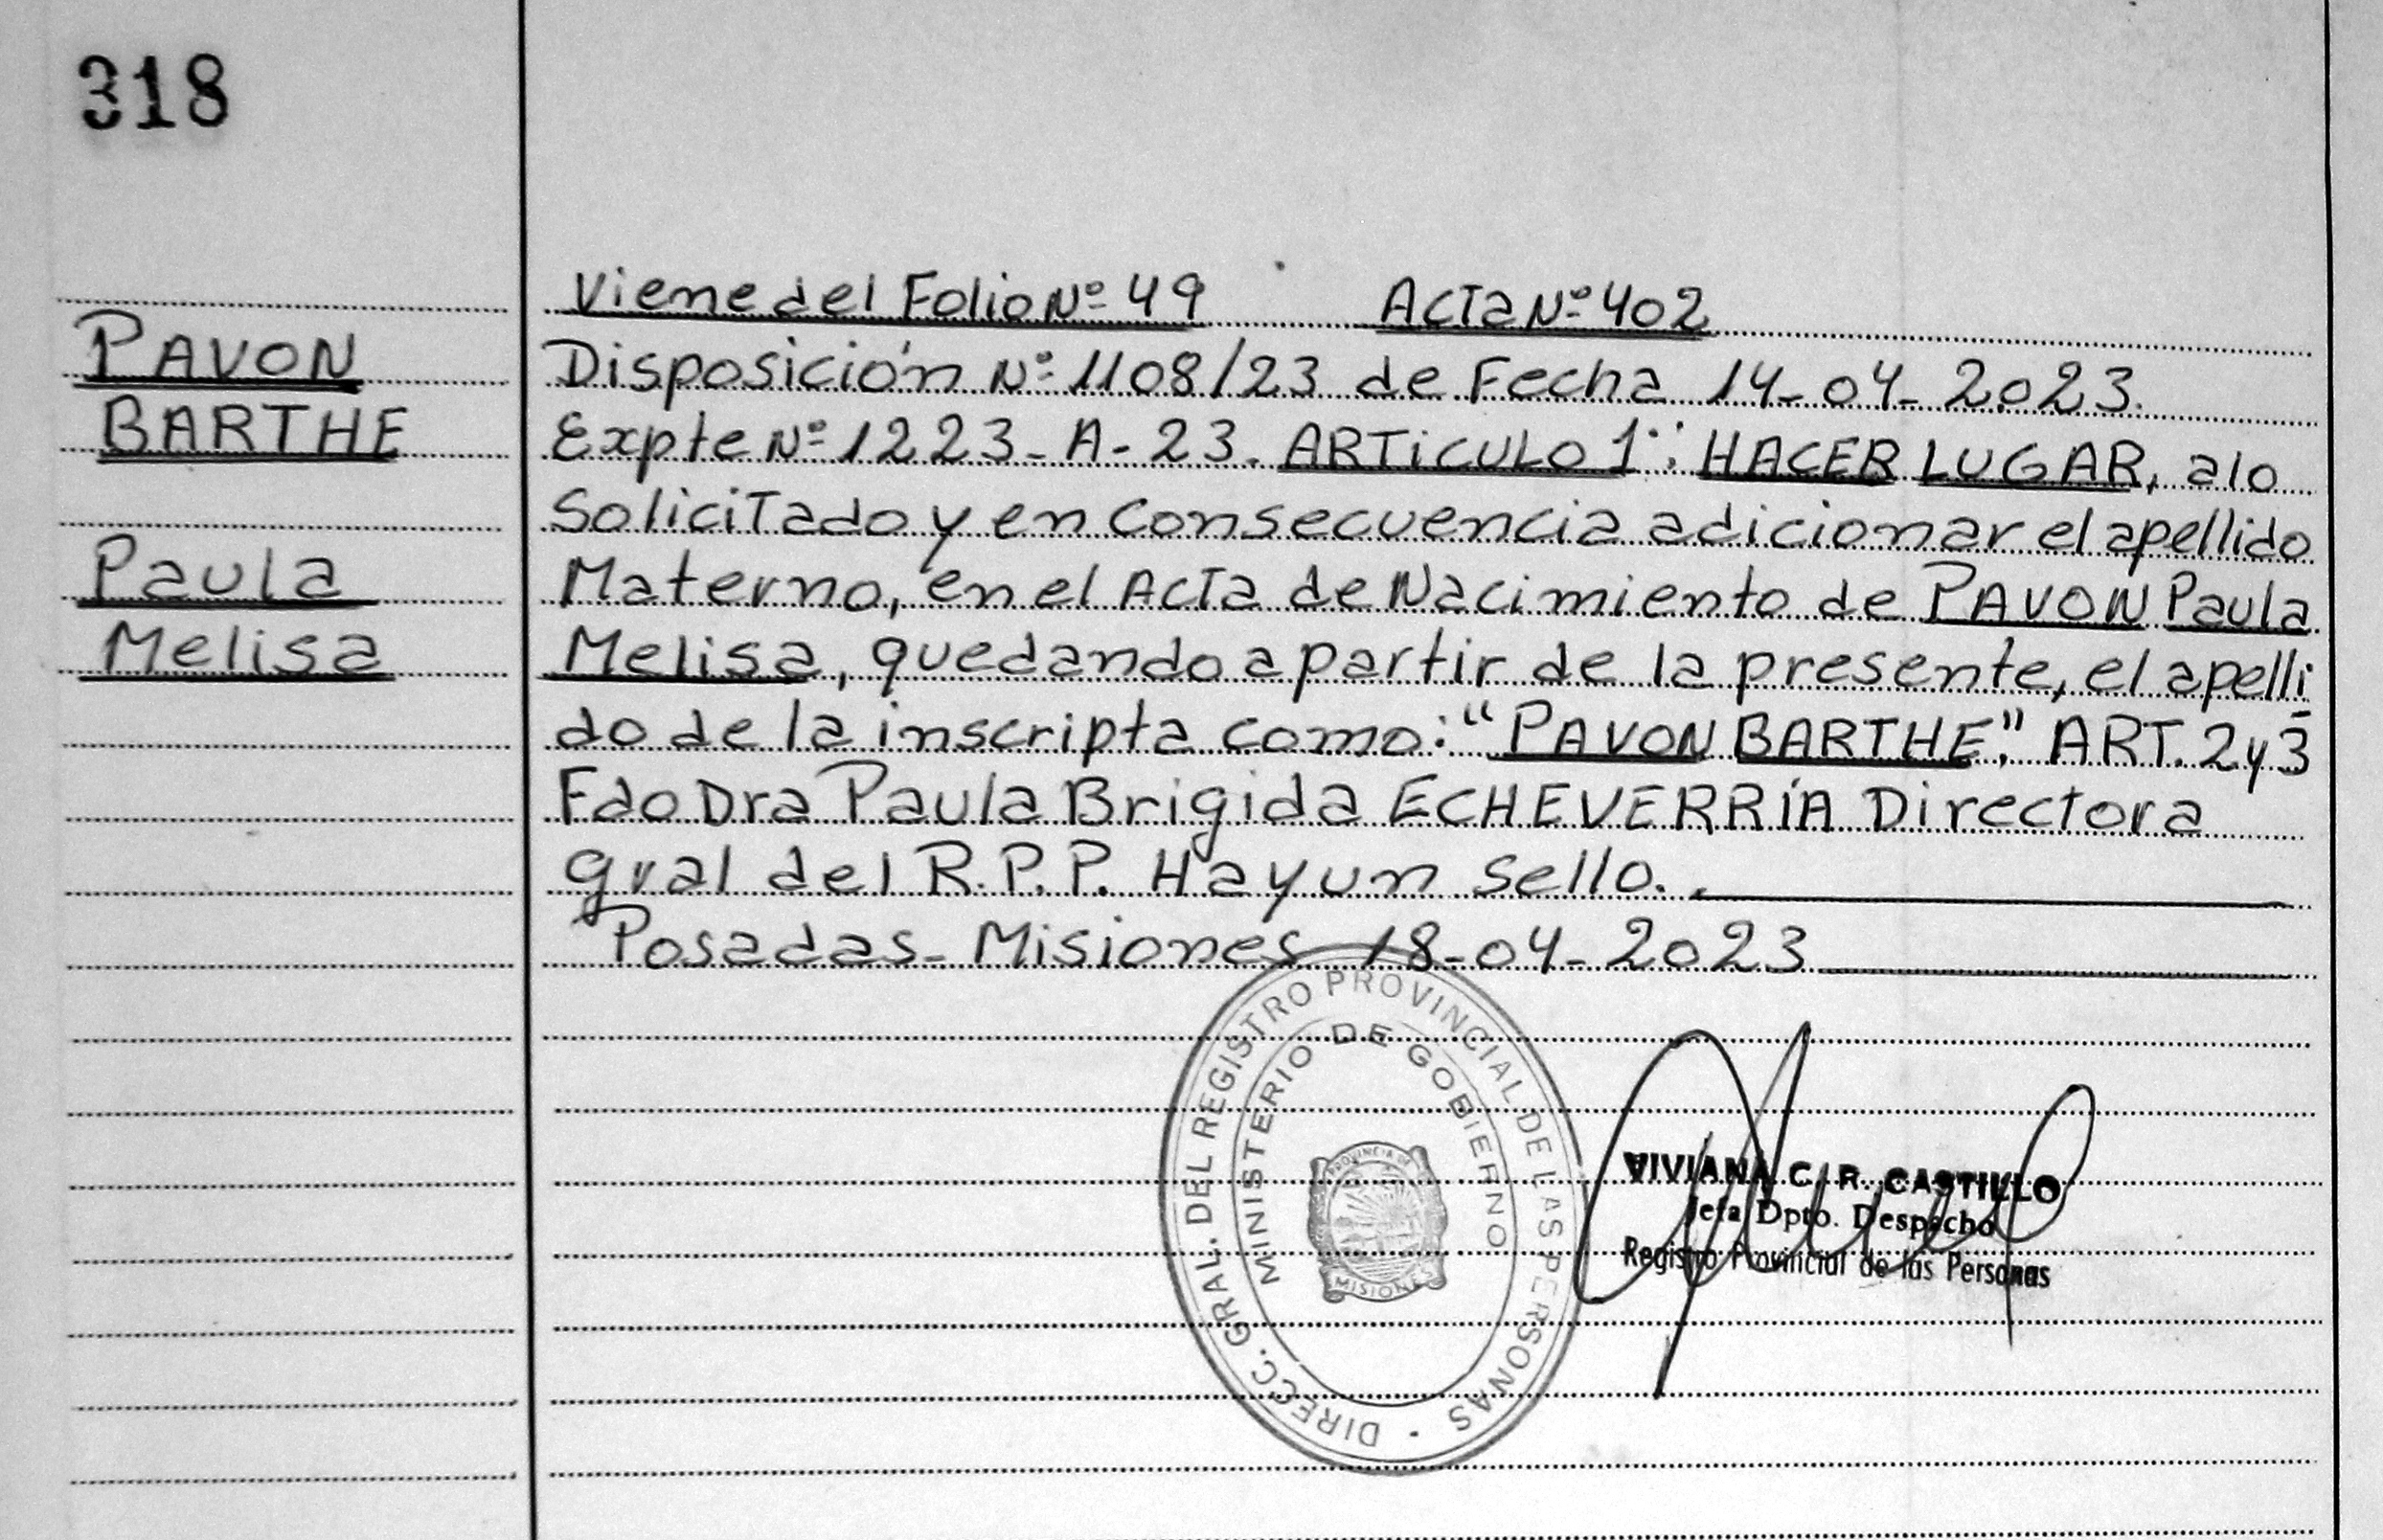 318
PAVON
BARTHE
Paula
Melisa
Viene del Folio Nº 49 Acta Nº 402
Disposición Nº 1108/23 de Fecha 14-04-2023.
Expte Nº 1223-A-23. ARTiCULO 1º: HACER LUGAR, a lo
Solicitado y en Consecuencia adicionar el apellido
Materno, en el Acta de Nacimiento de PAVON Paula
Melisa, quedando a partir de la presente, el apelli
do de la inscripta como: "PAVON BARTHE." ART. 2 y 3
Fdo Dra Paula Brigida ECHEVERRÍA Directora
gral del R.P.P. Hay un sello.
Posadas- Misiones 18-04-2023
DIRECC. GRAL. DEL REGISTRO PROVINCIAL DE LAS PERSONAS
MINISTERIO DE GOBIERNO
PROVINCIA DE
MISIONES
VIVIANA C. R. CASTILLO
Jefa Dpto. Despacho
Registro Provincial de las Personas